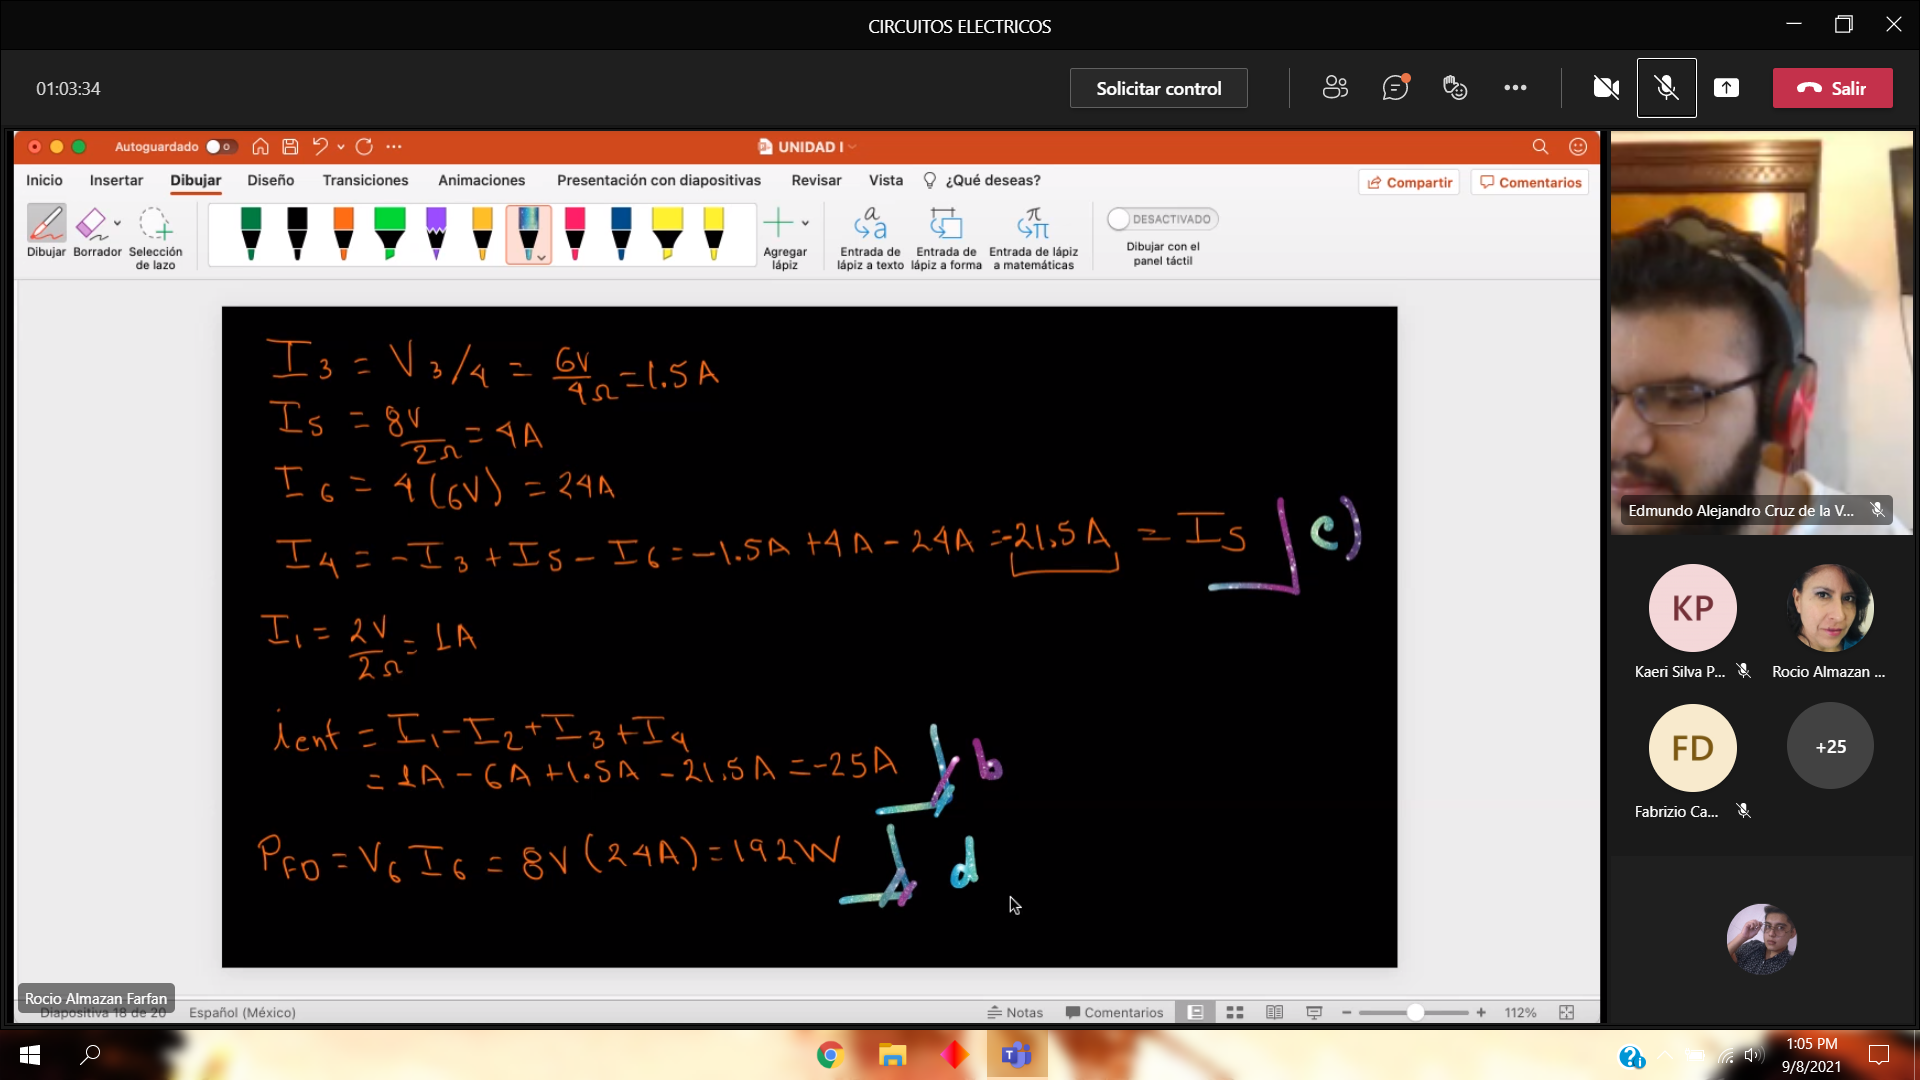 CIRCUITOS ELECTRICOS
01:03:34
Solicitar control
Salir
Autoguardado
UNIDAD I
Inicio Insertar Dibujar Diseño Transiciones Animaciones Presentación con diapositivas Revisar Vista ¿Qué deseas? Compartir Comentarios
Dibujar
Borrador
Selección
de lazo
Agregar
lápiz
Entrada de
lápiz a texto
Entrada de
lápiz a forma
Entrada de lápiz
a matemáticas
DESACTIVADO
Dibujar con el
panel táctil
I3 = V3/4 = 6V/4Ω = 1.5A
I5 = 8V/2Ω = 4A
I6 = 4(6V) = 24A
I4 = -I3 + I5 - I6 = -1.5A + 4A - 24A = -21.5A = Is c)
I1 = 2V/2Ω = 1A
ient = I1 - I2 + I3 + I4
= 1A - 6A + 1.5A - 21.5A = -25A b
PFD = V6 I6 = 8V(24A) = 192W d
Rocio Almazan Farfan
Diapositiva 18 de 20 Español (México) Notas Comentarios 112%
Edmundo Alejandro Cruz de la V...
KP
Kaeri Silva P...
Rocio Almazan ...
FD
Fabrizio Ca...
+25
1:05 PM
9/8/2021